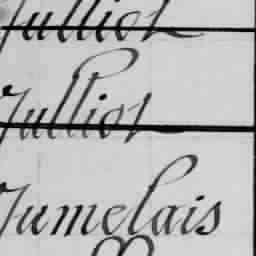 Julliot
Julliot
Jumelais